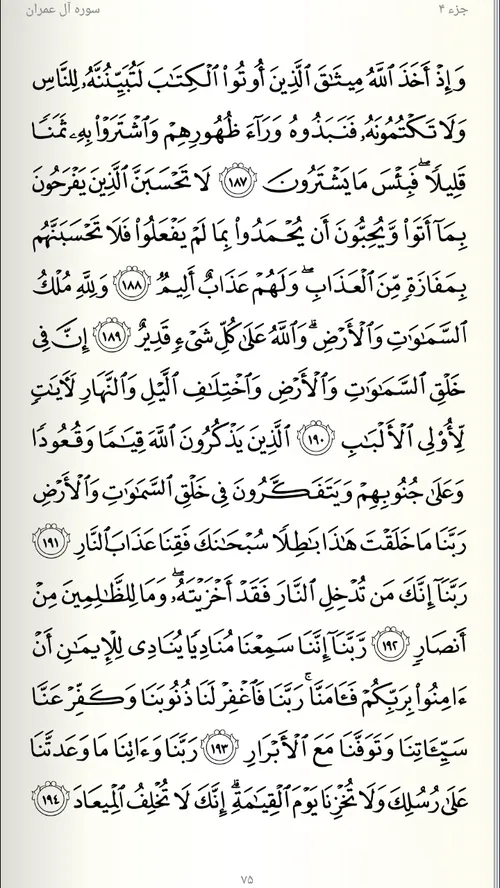 جزء ۴
سوره آل عمران
وَإِذْ أَخَذَ ٱللَّهُ مِيثَـٰقَ ٱلَّذِينَ أُوتُوا۟ ٱلْكِتَـٰبَ لَتُبَيِّنُنَّهُۥ لِلنَّاسِ
وَلَا تَكْتُمُونَهُۥ فَنَبَذُوهُ وَرَآءَ ظُهُورِهِمْ وَٱشْتَرَوْا۟ بِهِۦ ثَمَنًا
قَلِيلًا ۖ فَبِئْسَ مَا يَشْتَرُونَ ﴿١٨٧﴾ لَا تَحْسَبَنَّ ٱلَّذِينَ يَفْرَحُونَ
بِمَآ أَتَوا۟ وَّيُحِبُّونَ أَن يُحْمَدُوا۟ بِمَا لَمْ يَفْعَلُوا۟ فَلَا تَحْسَبَنَّهُم
بِمَفَازَةٍ مِّنَ ٱلْعَذَابِ ۖ وَلَهُمْ عَذَابٌ أَلِيمٌ ﴿١٨٨﴾ وَلِلَّهِ مُلْكُ
ٱلسَّمَـٰوَٰتِ وَٱلْأَرْضِ ۗ وَٱللَّهُ عَلَىٰ كُلِّ شَىْءٍ قَدِيرٌ ﴿١٨٩﴾ إِنَّ فِى
خَلْقِ ٱلسَّمَـٰوَٰتِ وَٱلْأَرْضِ وَٱخْتِلَـٰفِ ٱلَّيْلِ وَٱلنَّهَارِ لَـَٔايَـٰتٍ
لِّأُو۟لِى ٱلْأَلْبَـٰبِ ﴿١٩٠﴾ ٱلَّذِينَ يَذْكُرُونَ ٱللَّهَ قِيَـٰمًا وَقُعُودًا
وَعَلَىٰ جُنُوبِهِمْ وَيَتَفَكَّرُونَ فِى خَلْقِ ٱلسَّمَـٰوَٰتِ وَٱلْأَرْضِ
رَبَّنَا مَا خَلَقْتَ هَـٰذَا بَـٰطِلًا سُبْحَـٰنَكَ فَقِنَا عَذَابَ ٱلنَّارِ ﴿١٩١﴾
رَبَّنَآ إِنَّكَ مَن تُدْخِلِ ٱلنَّارَ فَقَدْ أَخْزَيْتَهُۥ ۖ وَمَا لِلظَّـٰلِمِينَ مِنْ
أَنصَارٍ ﴿١٩٢﴾ رَّبَّنَآ إِنَّنَا سَمِعْنَا مُنَادِيًا يُنَادِى لِلْإِيمَـٰنِ أَنْ
ءَامِنُوا۟ بِرَبِّكُمْ فَـَٔامَنَّا ۚ رَبَّنَا فَٱغْفِرْ لَنَا ذُنُوبَنَا وَكَفِّرْ عَنَّا
سَيِّـَٔاتِنَا وَتَوَفَّنَا مَعَ ٱلْأَبْرَارِ ﴿١٩٣﴾ رَبَّنَا وَءَاتِنَا مَا وَعَدتَّنَا
عَلَىٰ رُسُلِكَ وَلَا تُخْزِنَا يَوْمَ ٱلْقِيَـٰمَةِ ۗ إِنَّكَ لَا تُخْلِفُ ٱلْمِيعَادَ ﴿١٩٤﴾
۷۵